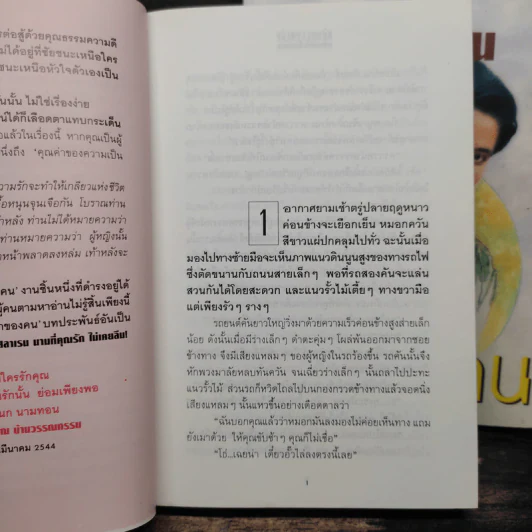 ต่อสู้ด้วยคุณธรรมความดี
ม่ได้อยู่ที่ชัยชนะเหนือใคร
ชนะเหนือหัวใจตัวเองเป็น
นั้น ไม่ใช่เรื่องง่าย
น์ได้ก็เลือดตาแทบกระเด็น
อแล้วในเรื่องนี้ หากคุณเป็นผู้
นึ่งถึง 'คุณค่าของความเป็น
วามรักจะทำให้เกลียวแห่งชีวิต
อหนุนจุนเจือกัน โบราณท่าน
ำหลัง ท่านไม่ได้หมายความว่า
ท่านหมายความว่า ผู้หญิงนั้น
หน้าพลาดลงหล่ม เท้าหลังจะ
คน' งานชิ้นหนึ่งที่ดำรงอยู่ได้
ผู้คนตามหาอ่านไม่รู้สิ้นเพียงนี้
าของคน' บทประพันธ์อันเป็น
สีลาเรม นามที่คุณรัก ไม่เคยลืม!
ใครรักคุณ
รักนั้น ย่อมเพียงพอ
นก นามทอน
ณ บ้านวรรณกรรม
มีนาคม 2544
1
อากาศยามเช้าตรู่ปลายฤดูหนาว
ค่อนข้างจะเยือกเย็น หมอกควัน
สีขาวแผ่ปกคลุมไปทั่ว ฉะนั้นเมื่อ
มองไปทางซ้ายมือจะเห็นภาพแนวดินนูนสูงของทางรถไฟ
ซึ่งตัดขนานกับถนนสายเล็กๆ พอที่รถสองคันจะแล่น
สวนกันได้โดยสะดวก และแนวรั้วไม้เตี้ยๆ ทางขวามือ
แต่เพียงรัวๆ รางๆ
รถยนต์คันยาวใหญ่วิ่งมาด้วยความเร็วค่อนข้างสูงส่ายเล็ก
น้อย ดังนั้นเมื่อมีร่างเล็กๆ ดำตะคุ่มๆ โผล่พ้นออกมาจากซอย
ข้างทาง จึงมีเสียงแหลมๆ ของผู้หญิงในรถร้องขึ้น รถคันนั้นจึง
หักพวงมาลัยหลบทันควัน จนเฉี่ยวร่างเล็กๆ นั้นถลาไปปะทะ
แนวรั้วไม้ ส่วนรถก็หวิดไถลไปบนกองกรวดข้างทางแล้วจอดนิ่ง
เสียงแหลมๆ นั้นแหวขึ้นอย่างเดือดดาลว่า
"ฉันบอกคุณแล้วว่าหมอกมันลงมองไม่ค่อยเห็นทาง แถม
ยังเมาด้วย ให้คุณขับช้าๆ คุณก็ไม่เชื่อ"
"โธ่...เฉยน่า เดี๋ยวอั๊วไล่ลงตรงนี้เลย"
1
น
าน